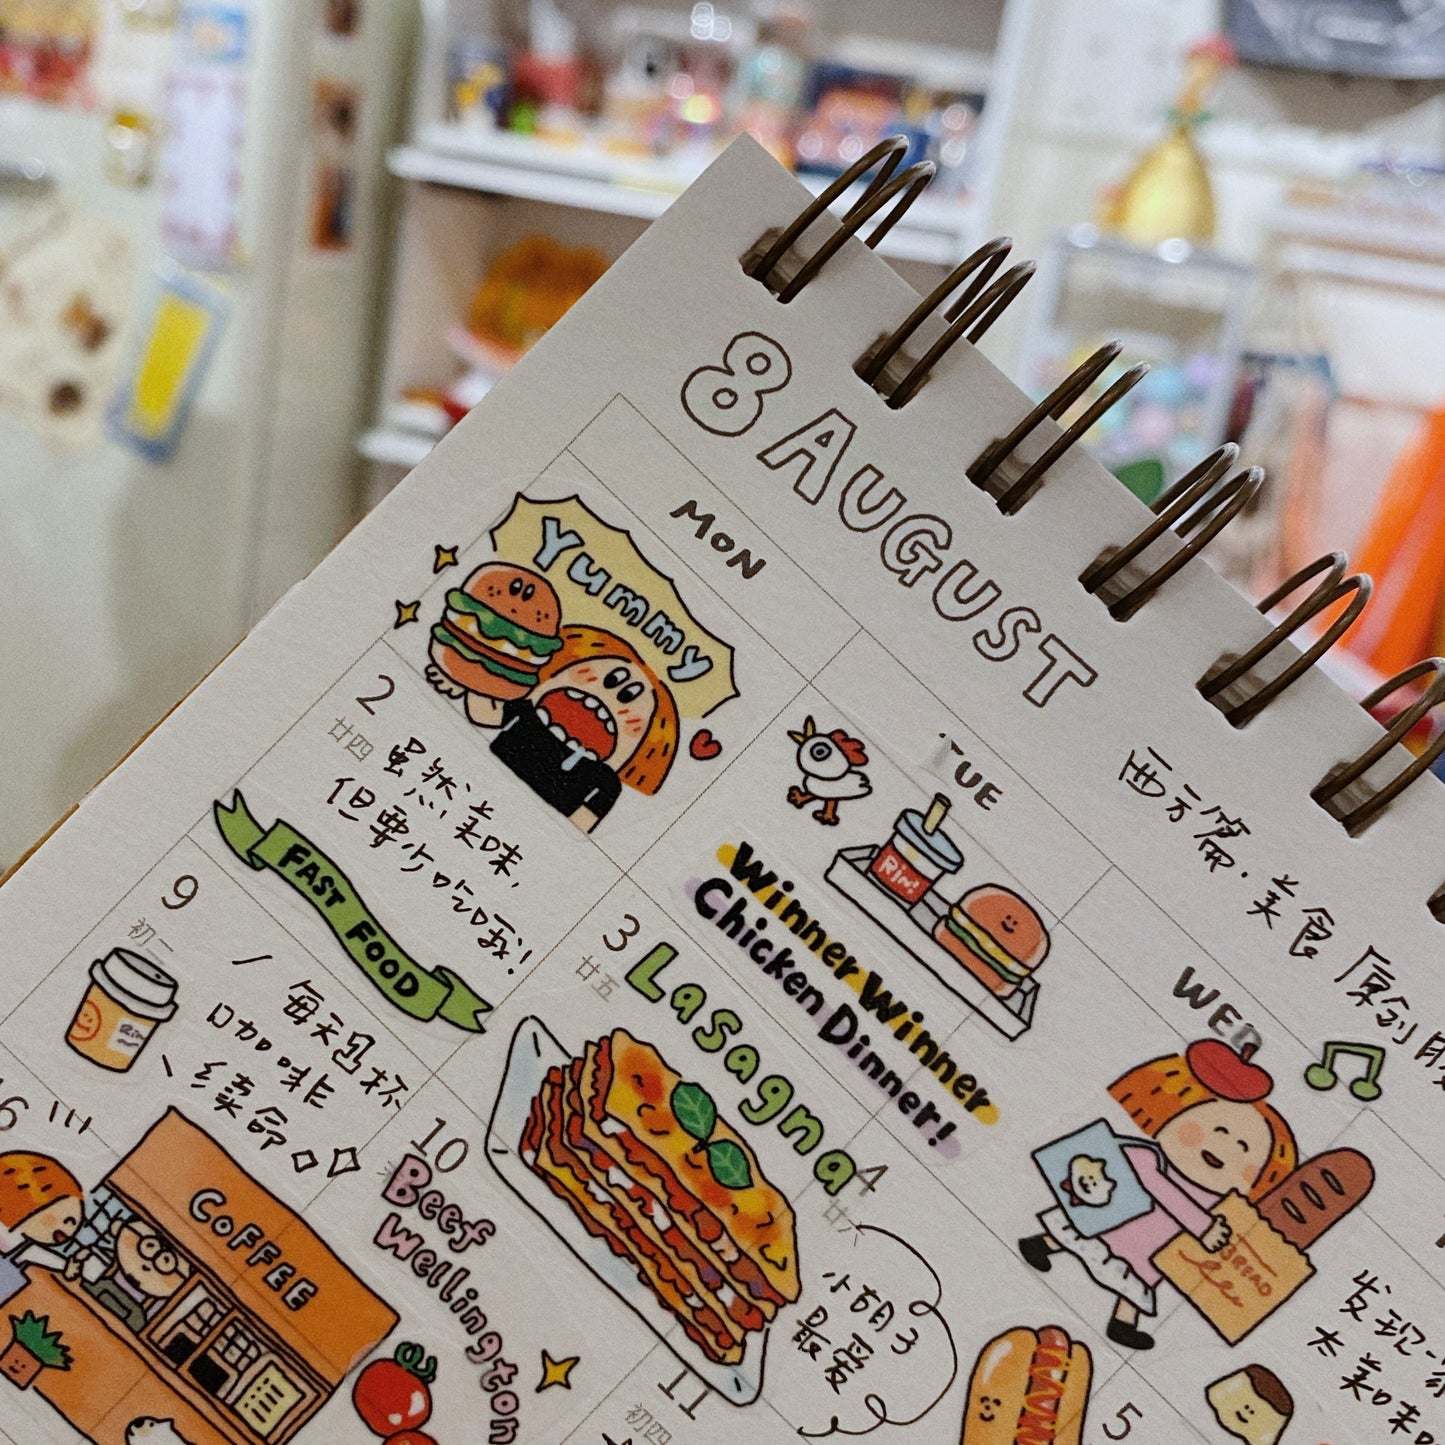 8 AUGUST
MON
TUE
WED
西方篇·美食
Yummy
2
廿四
虽然美味,
但要少吃哦!
FAST FOOD
RiN!
Winner Winner
Chicken Dinner!
3
廿五
Lasagna
4
廿六
小胡3
最爱
BREAD
发现
太美味
5
9
初二
每天一杯
咖啡
续命
COFFEE
10
Beef
Wellington
11
初四
16